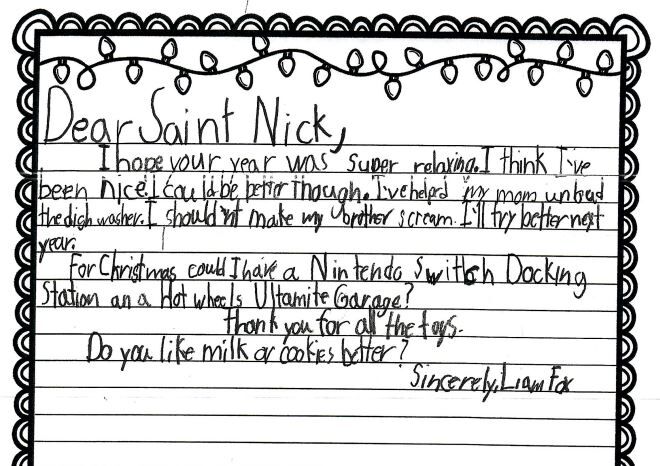 Dear Saint Nick,
I hope your year was super relaxing. I think I've
been nice. I could be better though. I've helped my mom unload
the dish washer. I should'nt make my brother scream. I'll try better next
year.
For Christmas could I have a Nintendo Switch Docking
Station an a Hot wheels Ultamite Garage?
Thank you for all the toys.
Do you like milk or cookies better?
Sincerely, Liam Fox